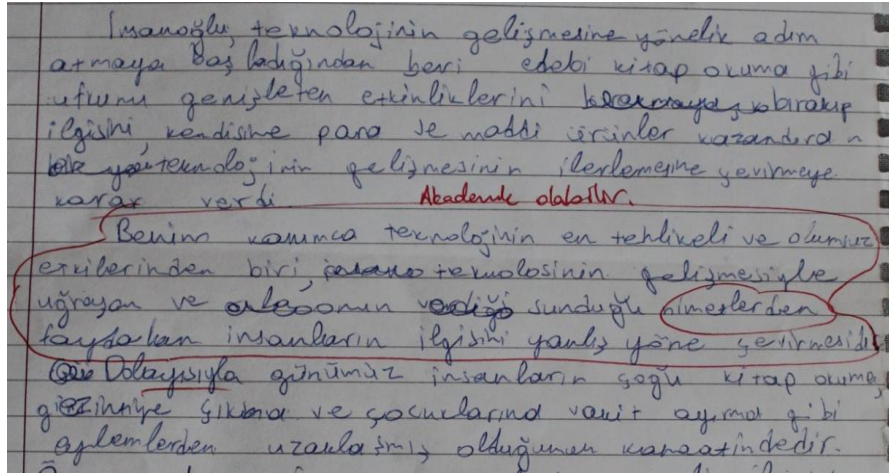 İnsanoğlu, teknolojinin gelişmesine yönelik adım
atmaya başladığından beri edebi kitap okuma gibi
ufkunu genişleten etkinliklerini bırakıp
ilgisini, kendisine para ve maddi ürünler kazandıran
teknolojinin gelişmesinin ilerlemesine çevirmeye
karar verdi.
Akademik olabilir.
Benim kanımca teknolojinin en tehlikeli ve olumsuz
etkilerinden biri, teknolosinin gelişmesiyle
uğraşan ve onun sunduğu nimetlerden
faydalnan insanların ilgisini yanlış yöne çevirmesidir
Dolayısıyla günümüz insanların çoğu kitap okuma,
gezintiye çıkma ve çocuklarınd vakit ayırma gibi
eylemlerden uzaklaşmış olduğunun kanaatindedir.